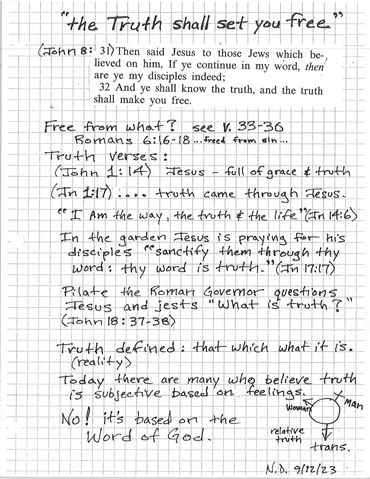 "the Truth shall set you free"
(John 8: 31) Then said Jesus to those Jews which be-
lieved on him, If ye continue in my word, then
are ye my disciples indeed;
32 And ye shall know the truth, and the truth
shall make you free.
Free from what? see v. 33-36
Romans 6:16-18 ...freed from sin...
Truth verses:
(John 1:14) Jesus - full of grace & truth
(Jn 1:17) .... truth came through Jesus.
"I Am the way, the truth & the life" (Jn 14:6)
In the garden Jesus is praying for his
disciples "sanctify them through thy
word: thy word is truth." (Jn 17:17)
Pilate the Roman Governor questions
Jesus and jests "What is truth?"
(John 18:37-38)
Truth defined: that which what it is.
(reality)
Today there are many who believe truth
is subjective based on feelings.
No! it's based on the
Word of God.
Woman
MAN
relative
truth
trans.
N.D. 9/12/23